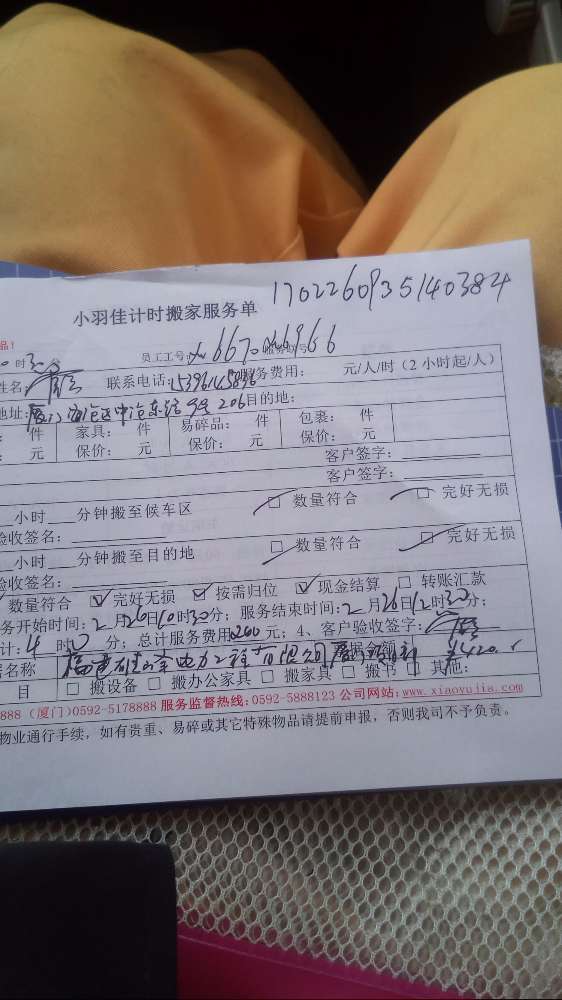 1702260935140384
小羽佳计时搬家服务单
品!
时30分 员工工号: 667
姓名: 联系电话:15396145896 服务费用: 元/人/时(2小时起/人)
地址: 206 目的地:
件 家具: 件 易碎品: 件 包裹: 件
元 保价: 元 保价: 元 保价: 元
客户签字:
客户签字:
小时 分钟搬至候车区 □ 数量符合 □ 完好无损
验收签名:
小时 分钟搬至目的地 □ 数量符合 □ 完好无损
验收签名:
数量符合 ☑ 完好无损 ☑ 按需归位 ☑ 现金结算 □ 转账汇款
务开始时间:2月26日10时30分; 服务结束时间:2月26日12时30分;
计:4时0分; 总计服务费用 元; 4、客户验收签字:
名称 福建 电力工程有限公司 ¥420.
目 □ 搬设备 □ 搬办公家具 □ 搬家具 □ 搬书 □ 其他:
888 (厦门)0592-5178888 服务监督热线:0592-5888123 公司网站:www.xiaoyujia.com
物业通行手续,如有贵重、易碎或其它特殊物品请提前申报,否则我司不予负责。